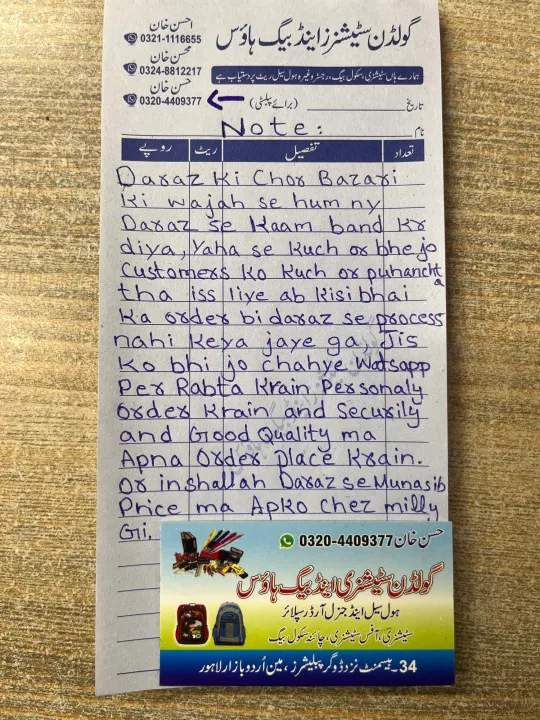 احسن خان
0321-1116655
محسن خان
0324-8812217
حسن خان
0320-4409377
گولڈن سٹیشنرز اینڈ بیگ ہاؤس
ہمارے ہاں سٹیشنری، سکول بیگ، رجسٹر وغیرہ ہول سیل ریٹ پر دستیاب ہے
تاریخ (برائے پبلسٹی)
Note:
نام
تعداد تفصیل ریٹ روپے
Daraz Ki Chor Bazari
Ki wajah se hum ny
Daraz se Kaam band Kr
diya, Yaha se Kuch or bhejo
Customers Ko Kuch or puhanchta
tha iss liye ab Kisi bhai
Ka order bi daraz se process
nahi Keya jaye ga, Jis
Ko bhi jo chahye Watsapp
Per Rabta Krain Personaly
order Krain and Security
and Good Quality ma
Apna Order place Krain.
Or inshallah Daraz se Munasib
Price ma Apko chez milly
Gi.
حسن خان 0320-4409377
گولڈن سٹیشنری اینڈ بیگ ہاؤس
ہول سیل اینڈ جنرل آرڈر سپلائر
سٹیشنری، آفس سٹیشنری، چائنہ سکول بیگ
34۔ بیسمنٹ نزد ڈوگر پبلیشرز، مین اُردو بازار لاہور